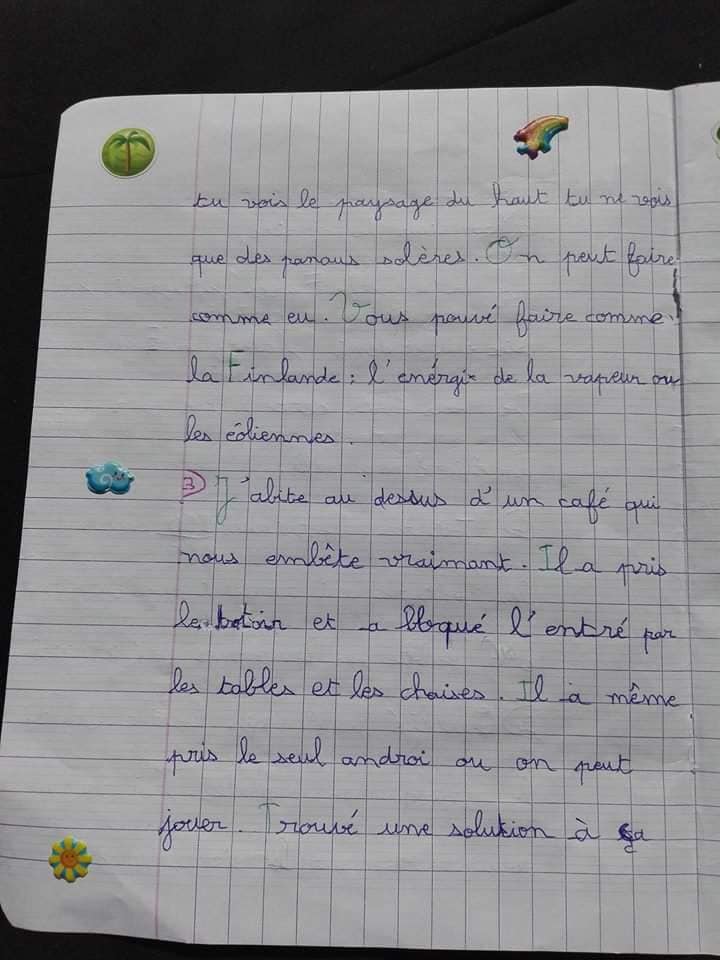 tu vois le paysage du haut tu ne vois
que des panaus solères. On peut faire
comme eu. Vous pouvé faire comme
la Finlande : l'enérgie de la vapeur ou
les éoliennes.
3) J'abite au dessus d'un café qui
nous embête vraimant. Il a pris
le et a bloqué l'entré par
les tables et les chaises. Il a même
pris le seul androi ou on peut
jouer. Trouvé une solution à ça